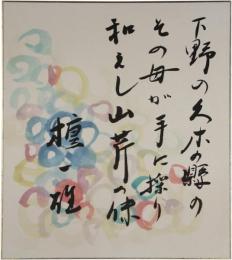 下野の久保の驛の
その母が手に採り
和えし山芹の味
檀一雄